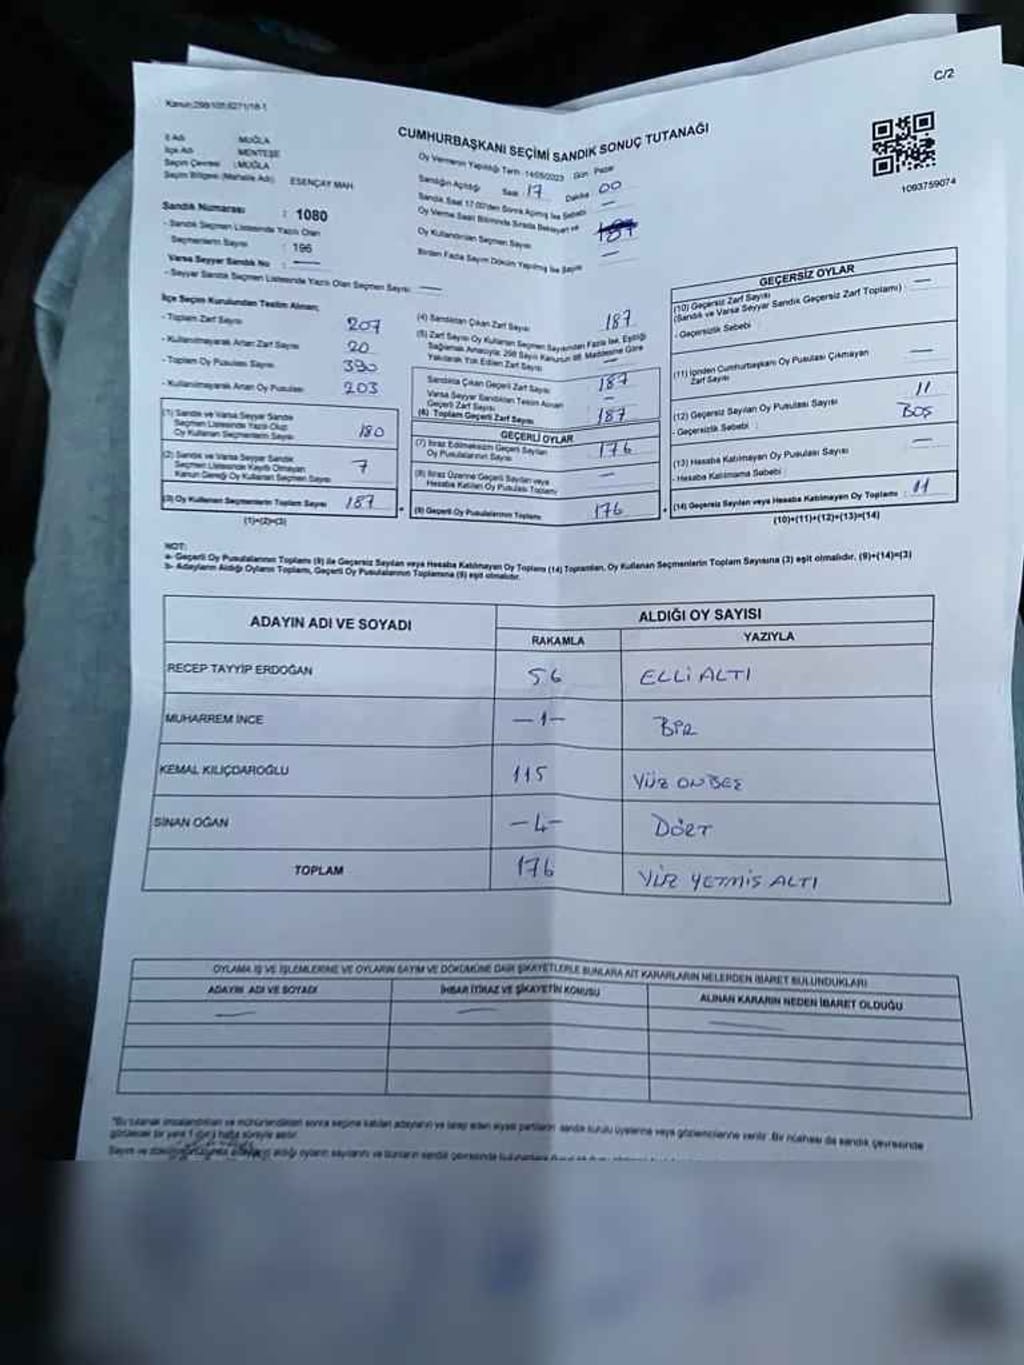 C/2
Kanun:298/105;6271/18-1
CUMHURBAŞKANI SEÇİMİ SANDIK SONUÇ TUTANAĞI
1093759074
İl Adı MUĞLA
İlçe Adı MENTEŞE
Seçim Çevresi : MUĞLA
Seçim Bölgesi (Mahalle Adı) ESENÇAY MAH.
Sandık Numarası : 1080
- Sandık Seçmen Listesinde Yazılı Olan
Seçmenlerin Sayısı : 196
Varsa Seyyar Sandık No : —
- Seyyar Sandık Seçmen Listesinde Yazılı Olan Seçmen Sayısı : —
Oy Vermenin Yapıldığı Tarih : 14/05/2023 Gün Pazar
Sandığın Açıldığı Saat 17 Dakika 00
Sandık Saat 17:00'den Sonra Açılmış İse Sebebi —
Oy Verme Saati Bitiminde Sırada Bekleyen ve
Oy Kullandırılan Seçmen Sayısı
Birden Fazla Sayım Döküm Yapılmış İse Sayısı —
İlçe Seçim Kurulundan Teslim Alınan;
- Toplam Zarf Sayısı 207
- Kullanılmayarak Artan Zarf Sayısı 20
- Toplam Oy Pusulası Sayısı 390
- Kullanılmayarak Artan Oy Pusulası 203
(1) Sandık ve Varsa Seyyar Sandık
Seçmen Listesinde Yazılı Olup
Oy Kullanan Seçmenlerin Sayısı 180
(2) Sandık ve Varsa Seyyar Sandık
Seçmen Listesinde Kayıtlı Olmayan
Kanun Gereği Oy Kullanan Seçmen Sayısı 7
(3) Oy Kullanan Seçmenlerin Toplam Sayısı 187
(1)+(2)=(3)
(4) Sandıktan Çıkan Zarf Sayısı 187
(5) Zarf Sayısı Oy Kullanan Seçmen Sayısından Fazla İse, Eşitliği
Sağlamak Amacıyla; 298 Sayılı Kanunun 98. Maddesine Göre
Yakılarak Yok Edilen Zarf Sayısı —
Sandıkta Çıkan Geçerli Zarf Sayısı 187
Varsa Seyyar Sandıktan Teslim Alınan
Geçerli Zarf Sayısı —
(6) Toplam Geçerli Zarf Sayısı 187
GEÇERLİ OYLAR
(7) İtiraz Edilmeksizin Geçerli Sayılan
Oy Pusulalarının Sayısı 176
(8) İtiraz Üzerine Geçerli Sayılan veya
Hesaba Katılan Oy Pusulası Toplamı —
(9) Geçerli Oy Pusulalarının Toplamı 176
GEÇERSİZ OYLAR
(10) Geçersiz Zarf Sayısı
(Sandık ve Varsa Seyyar Sandık Geçersiz Zarf Toplamı) : —
- Geçersizlik Sebebi :
(11) İçinden Cumhurbaşkanı Oy Pusulası Çıkmayan
Zarf Sayısı —
(12) Geçersiz Sayılan Oy Pusulası Sayısı 11
- Geçersizlik Sebebi : BOŞ
(13) Hesaba Katılmayan Oy Pusulası Sayısı —
- Hesaba Katılmama Sebebi :
(14) Geçersiz Sayılan veya Hesaba Katılmayan Oy Toplamı : 11
(10)+(11)+(12)+(13)=(14)
NOT:
a- Geçerli Oy Pusulalarının Toplamı (9) ile Geçersiz Sayılan veya Hesaba Katılmayan Oy Toplamı (14) Toplamları, Oy Kullanan Seçmenlerin Toplam Sayısına (3) eşit olmalıdır. (9)+(14)=(3)
b- Adayların Aldığı Oyların Toplamı, Geçerli Oy Pusulalarının Toplamına (9) eşit olmalıdır.
ADAYIN ADI VE SOYADI ALDIĞI OY SAYISI
RAKAMLA YAZIYLA
RECEP TAYYİP ERDOĞAN 56 ELLİ ALTI
MUHARREM İNCE —1— BİR
KEMAL KILIÇDAROĞLU 115 YÜZ ONBEŞ
SİNAN OĞAN —4— DÖRT
TOPLAM 176 YÜZ YETMİŞ ALTI
OYLAMA İŞ VE İŞLEMLERİNE VE OYLARIN SAYIM VE DÖKÜMÜNE DAİR ŞİKAYETLERLE BUNLARA AİT KARARLARIN NELERDEN İBARET BULUNDUKLARI
ADAYIN ADI VE SOYADI İHBAR İTİRAZ VE ŞİKAYETİN KONUSU ALINAN KARARIN NEDEN İBARET OLDUĞU
— — —
*Bu tutanak imzalandıktan ve mühürlendikten sonra seçime katılan adayların ve talep eden siyasi partilerin sandık kurulu üyelerine veya gözlemcilerine verilir. Bir nüshası da sandık çevresinde
görülecek bir yere 1 (bir) hafta süreyle asılır.